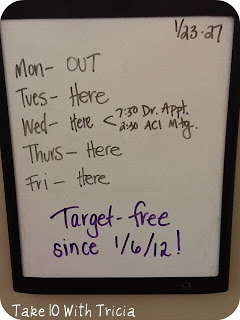 1/23-27
Mon- OUT
Tues- Here
Wed- Here < 7:30 Dr. Appt.
2:30 ACI Mtg.
Thurs- Here
Fri- Here
Target-free
since 1/6/12!
Take 10 With Tricia